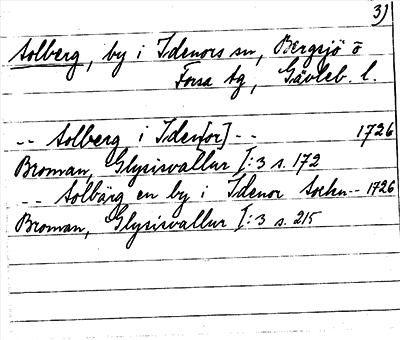 3)
Aolberg, by i Idenors sn, Bergsjö o
Forsa tg, Gävleb. l.
-- Aolberg i Iden[or] -- 1726
Broman, Glysisvallur I:3 s. 172
-- Aolbärg en by i Idenor Sochn -- 1726
Broman, Glysisvallur I:3 s. 215